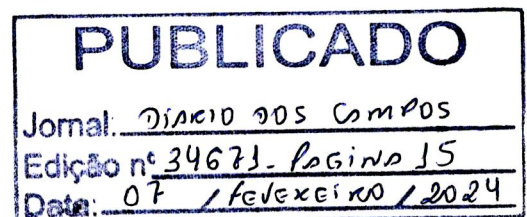 PUBLICADO
Jornal: DIARIO DOS CAMPOS
Edição nº 34671- PAGINA 15
Data: 07 / FEVEREIRO / 2024